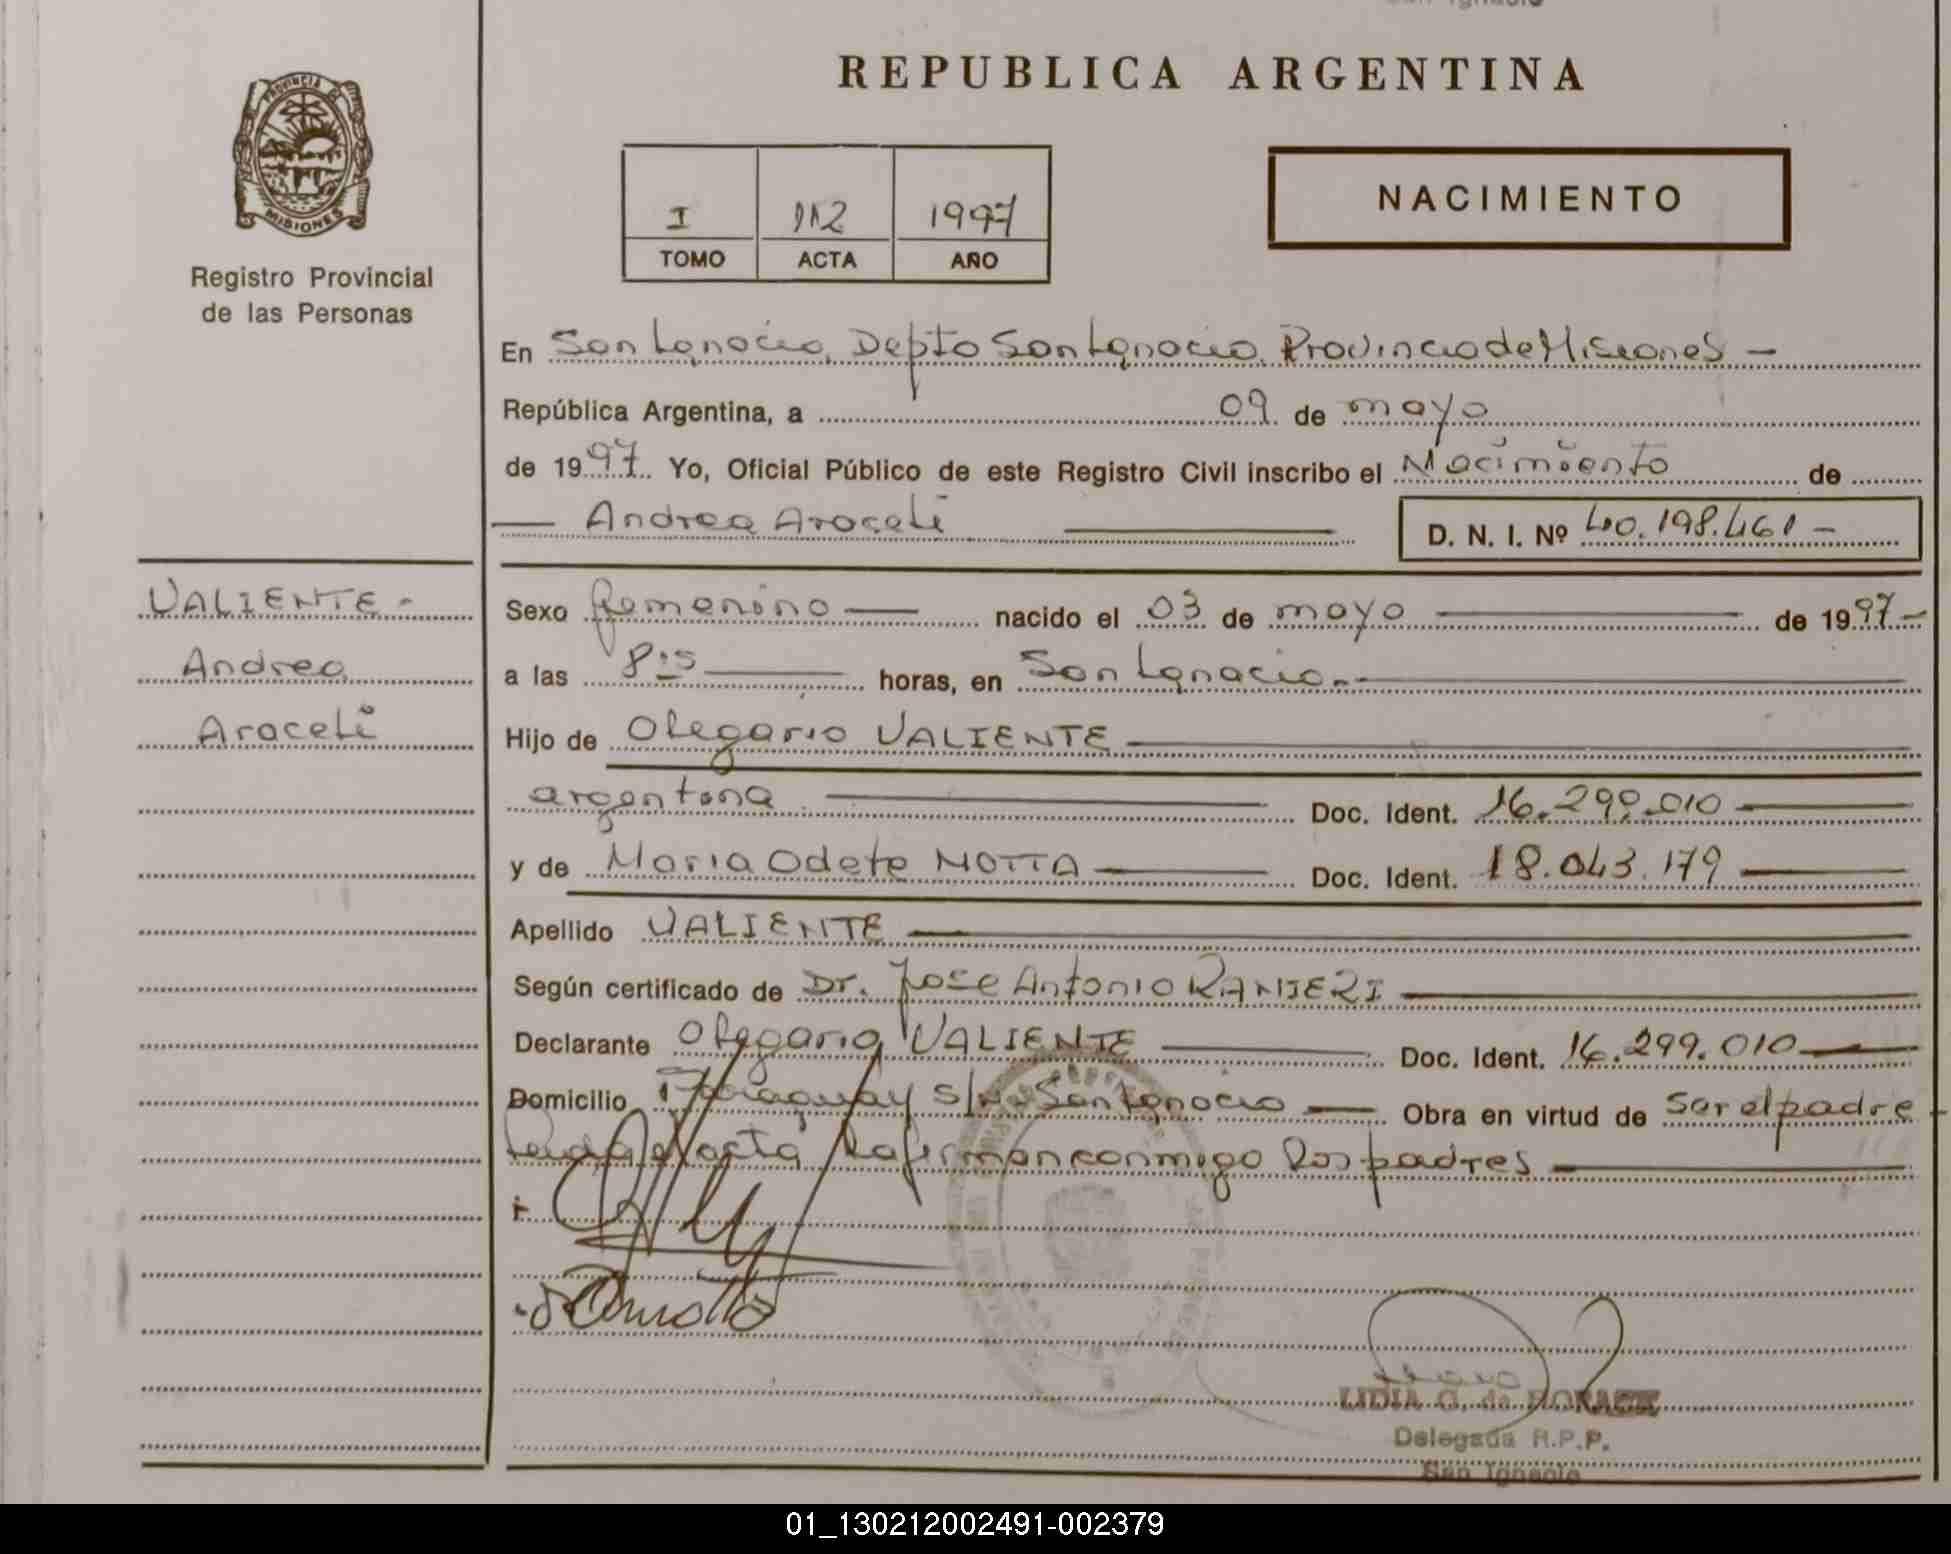 REPUBLICA ARGENTINA
PROVINCIA DE
MISIONES
Registro Provincial
de las Personas
I 112 1997
TOMO ACTA AÑO
NACIMIENTO
En San Ignacio, Depto San Ignacio, Provincia de Misiones -
República Argentina, a 09 de mayo
de 1997. Yo, Oficial Público de este Registro Civil inscribo el Nacimiento de
Andrea Araceli D. N. I. Nº 40.198.461 -
VALIENTE -
Andrea
Araceli
Sexo femenino nacido el 03 de mayo de 1997 -
a las 8:15 horas, en San Ignacio.
Hijo de Olegario VALIENTE
argentina Doc. Ident. 16.299.010
y de Maria Odete MOTTA Doc. Ident. 18.043.179
Apellido VALIENTE
Según certificado de Dr. Jose Antonio RANIERI
Declarante Olegario VALIENTE Doc. Ident. 16.299.010
Domicilio Paraguay s/Nº San Ignacio Obra en virtud de ser el padre
Leida el acta la firman conmigo los padres
LIDIA G. de
Delegada R.P.P.
San Ignacio
01_130212002491-002379